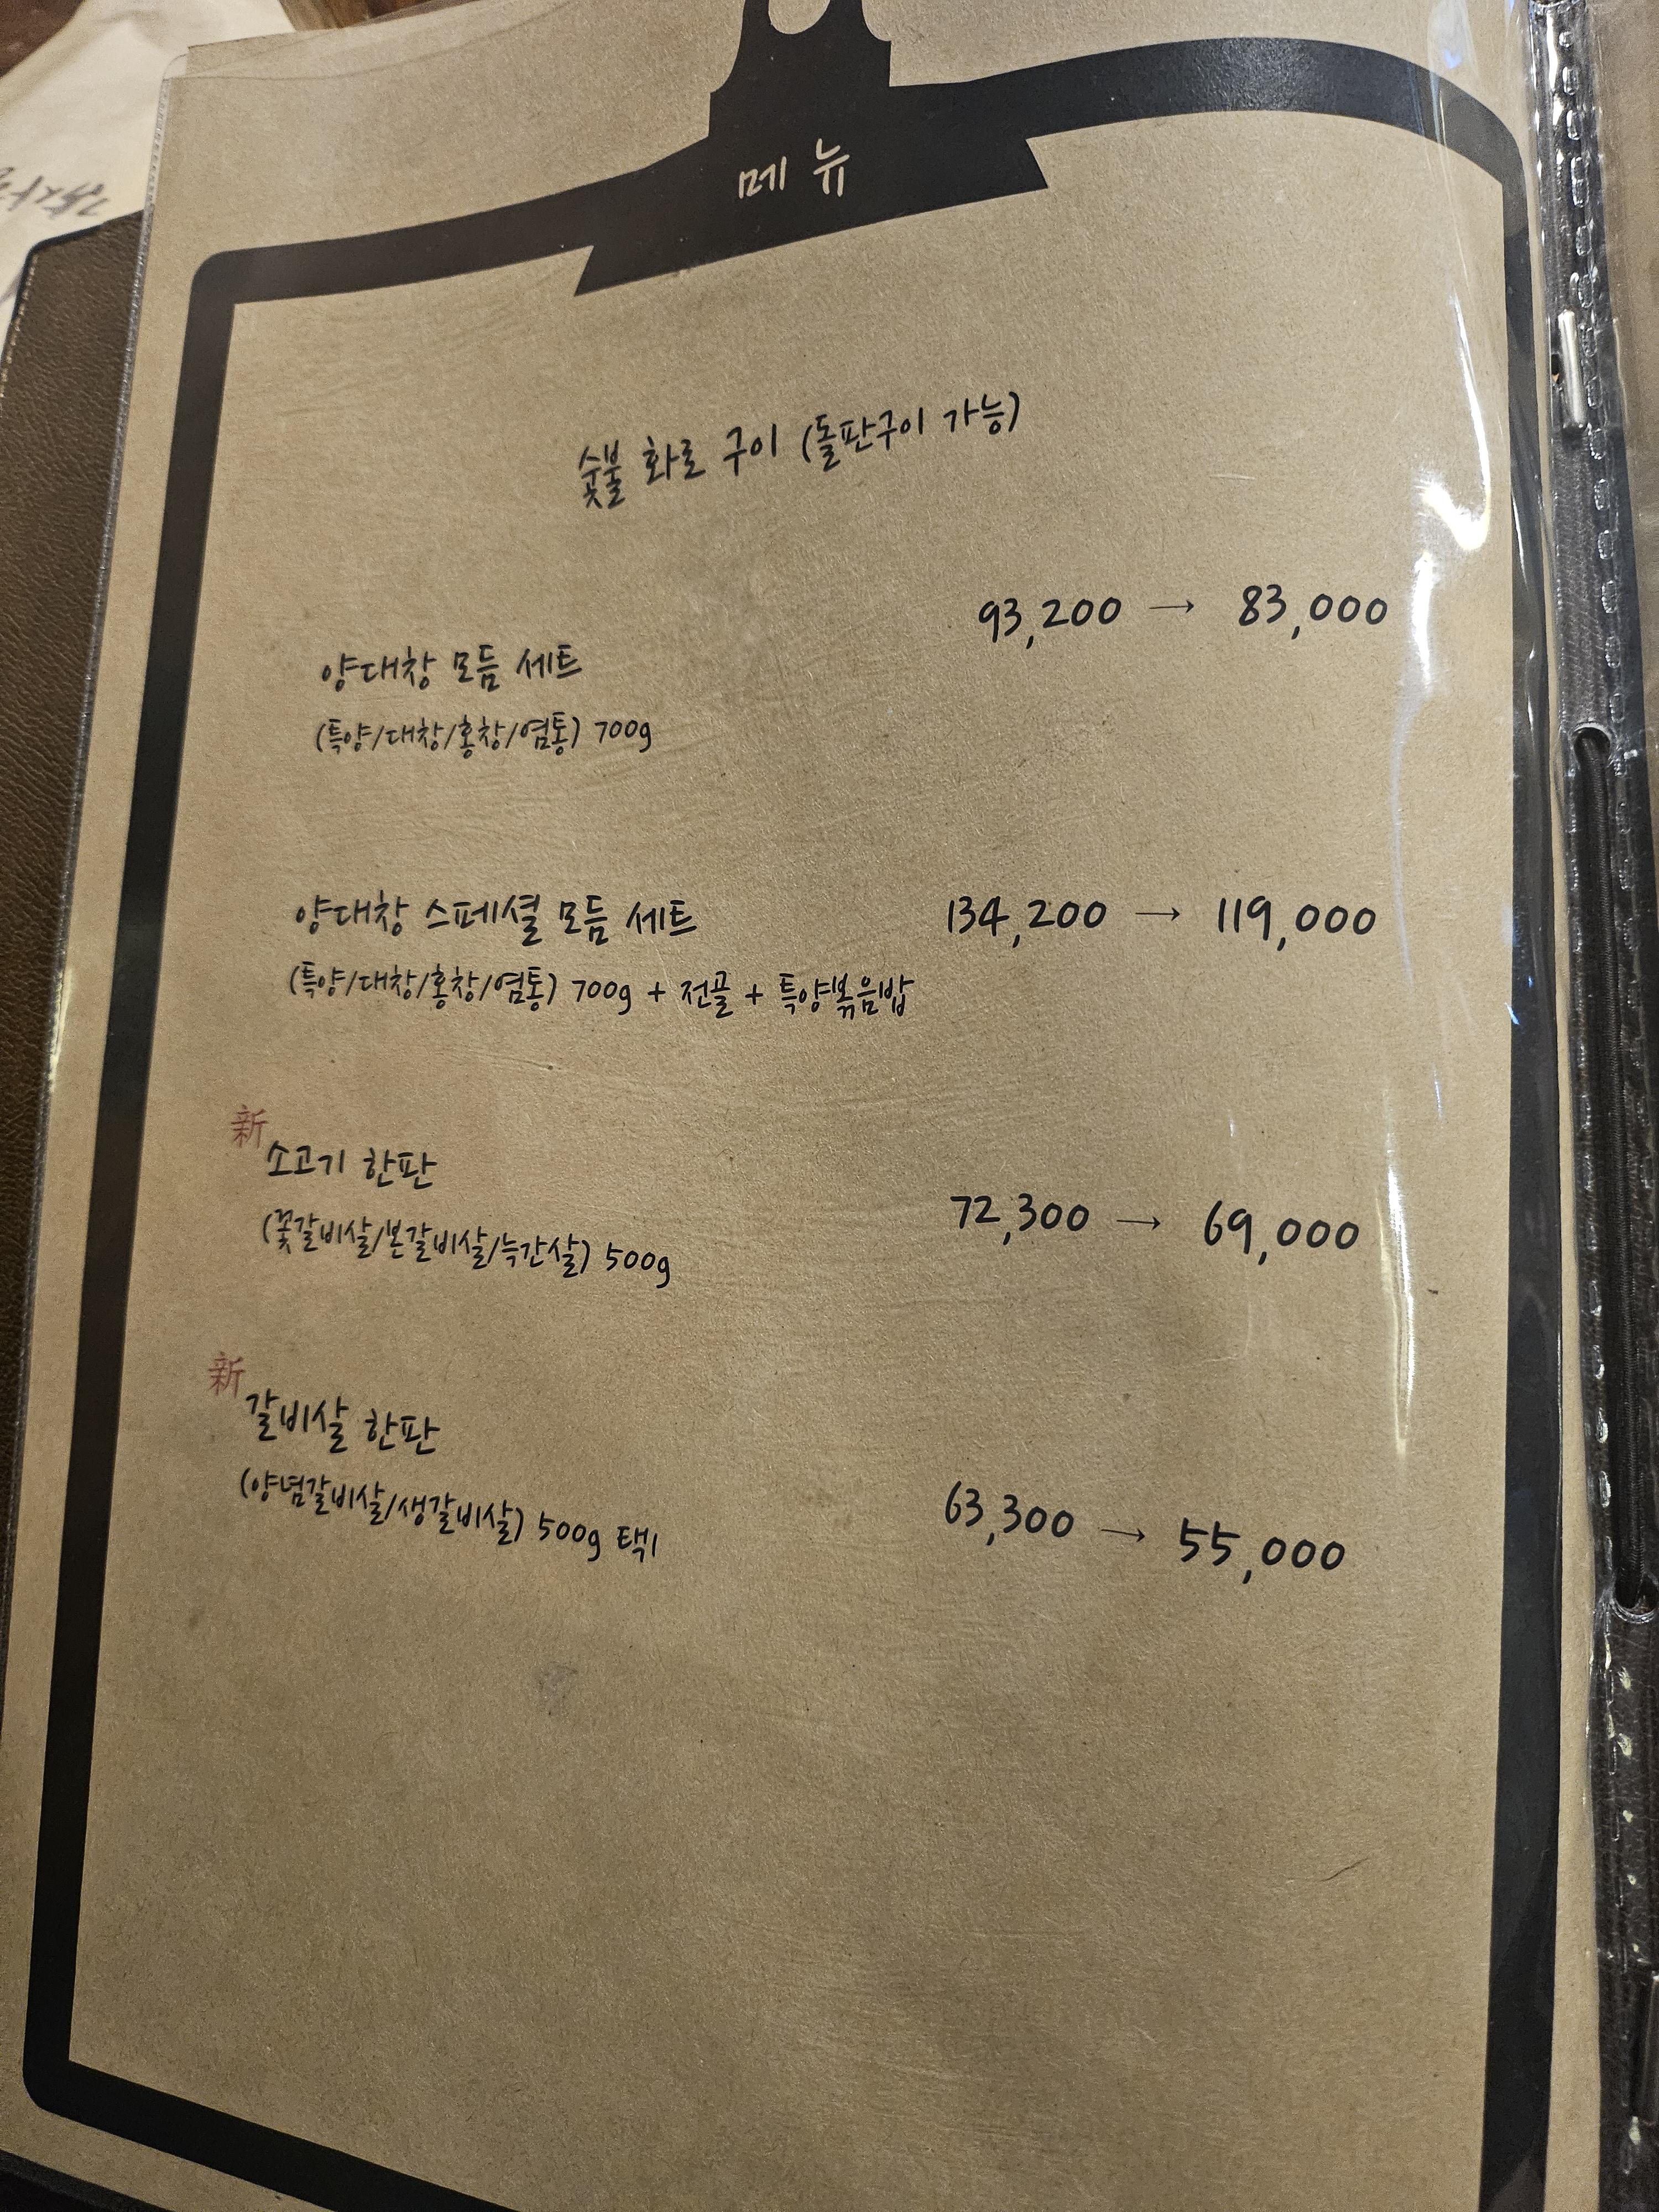 메뉴
숯불 화로 구이 (돌판구이 가능)
양대창 모듬 세트 93,200 → 83,000
(특양/대창/홍창/염통) 700g
양대창 스페셜 모듬 세트 134,200 → 119,000
(특양/대창/홍창/염통) 700g + 전골 + 특양볶음밥
新
소고기 한판 72,300 → 69,000
(꽃갈비살/본갈비살/늑간살) 500g
新
갈비살 한판 63,300 → 55,000
(양념갈비살/생갈비살) 500g 택1